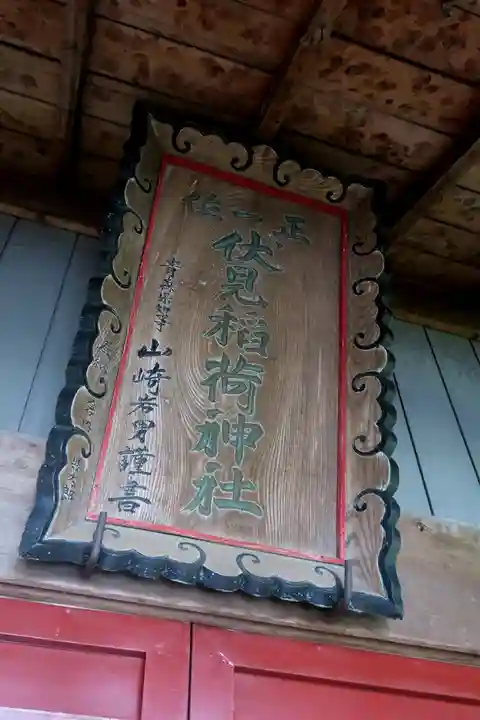 正一位
伏見稲荷神社
青森県知事 山崎岩男謹書